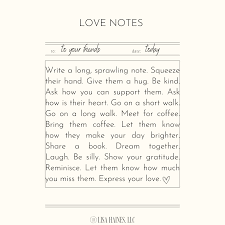 LOVE NOTES
TO: to your friends DATE: today
Write a long, sprawling note. Squeeze
their hand. Give them a hug. Be kind.
Ask how you can support them. Ask
how is their heart. Go on a short walk.
Go on a long walk. Meet for coffee.
Bring them coffee. Let them know
how they make your day brighter.
Share a book. Dream together.
Laugh. Be silly. Show your gratitude.
Reminisce. Let them know how much
you miss them. Express your love. ♡
© LISA HAINES, LLC